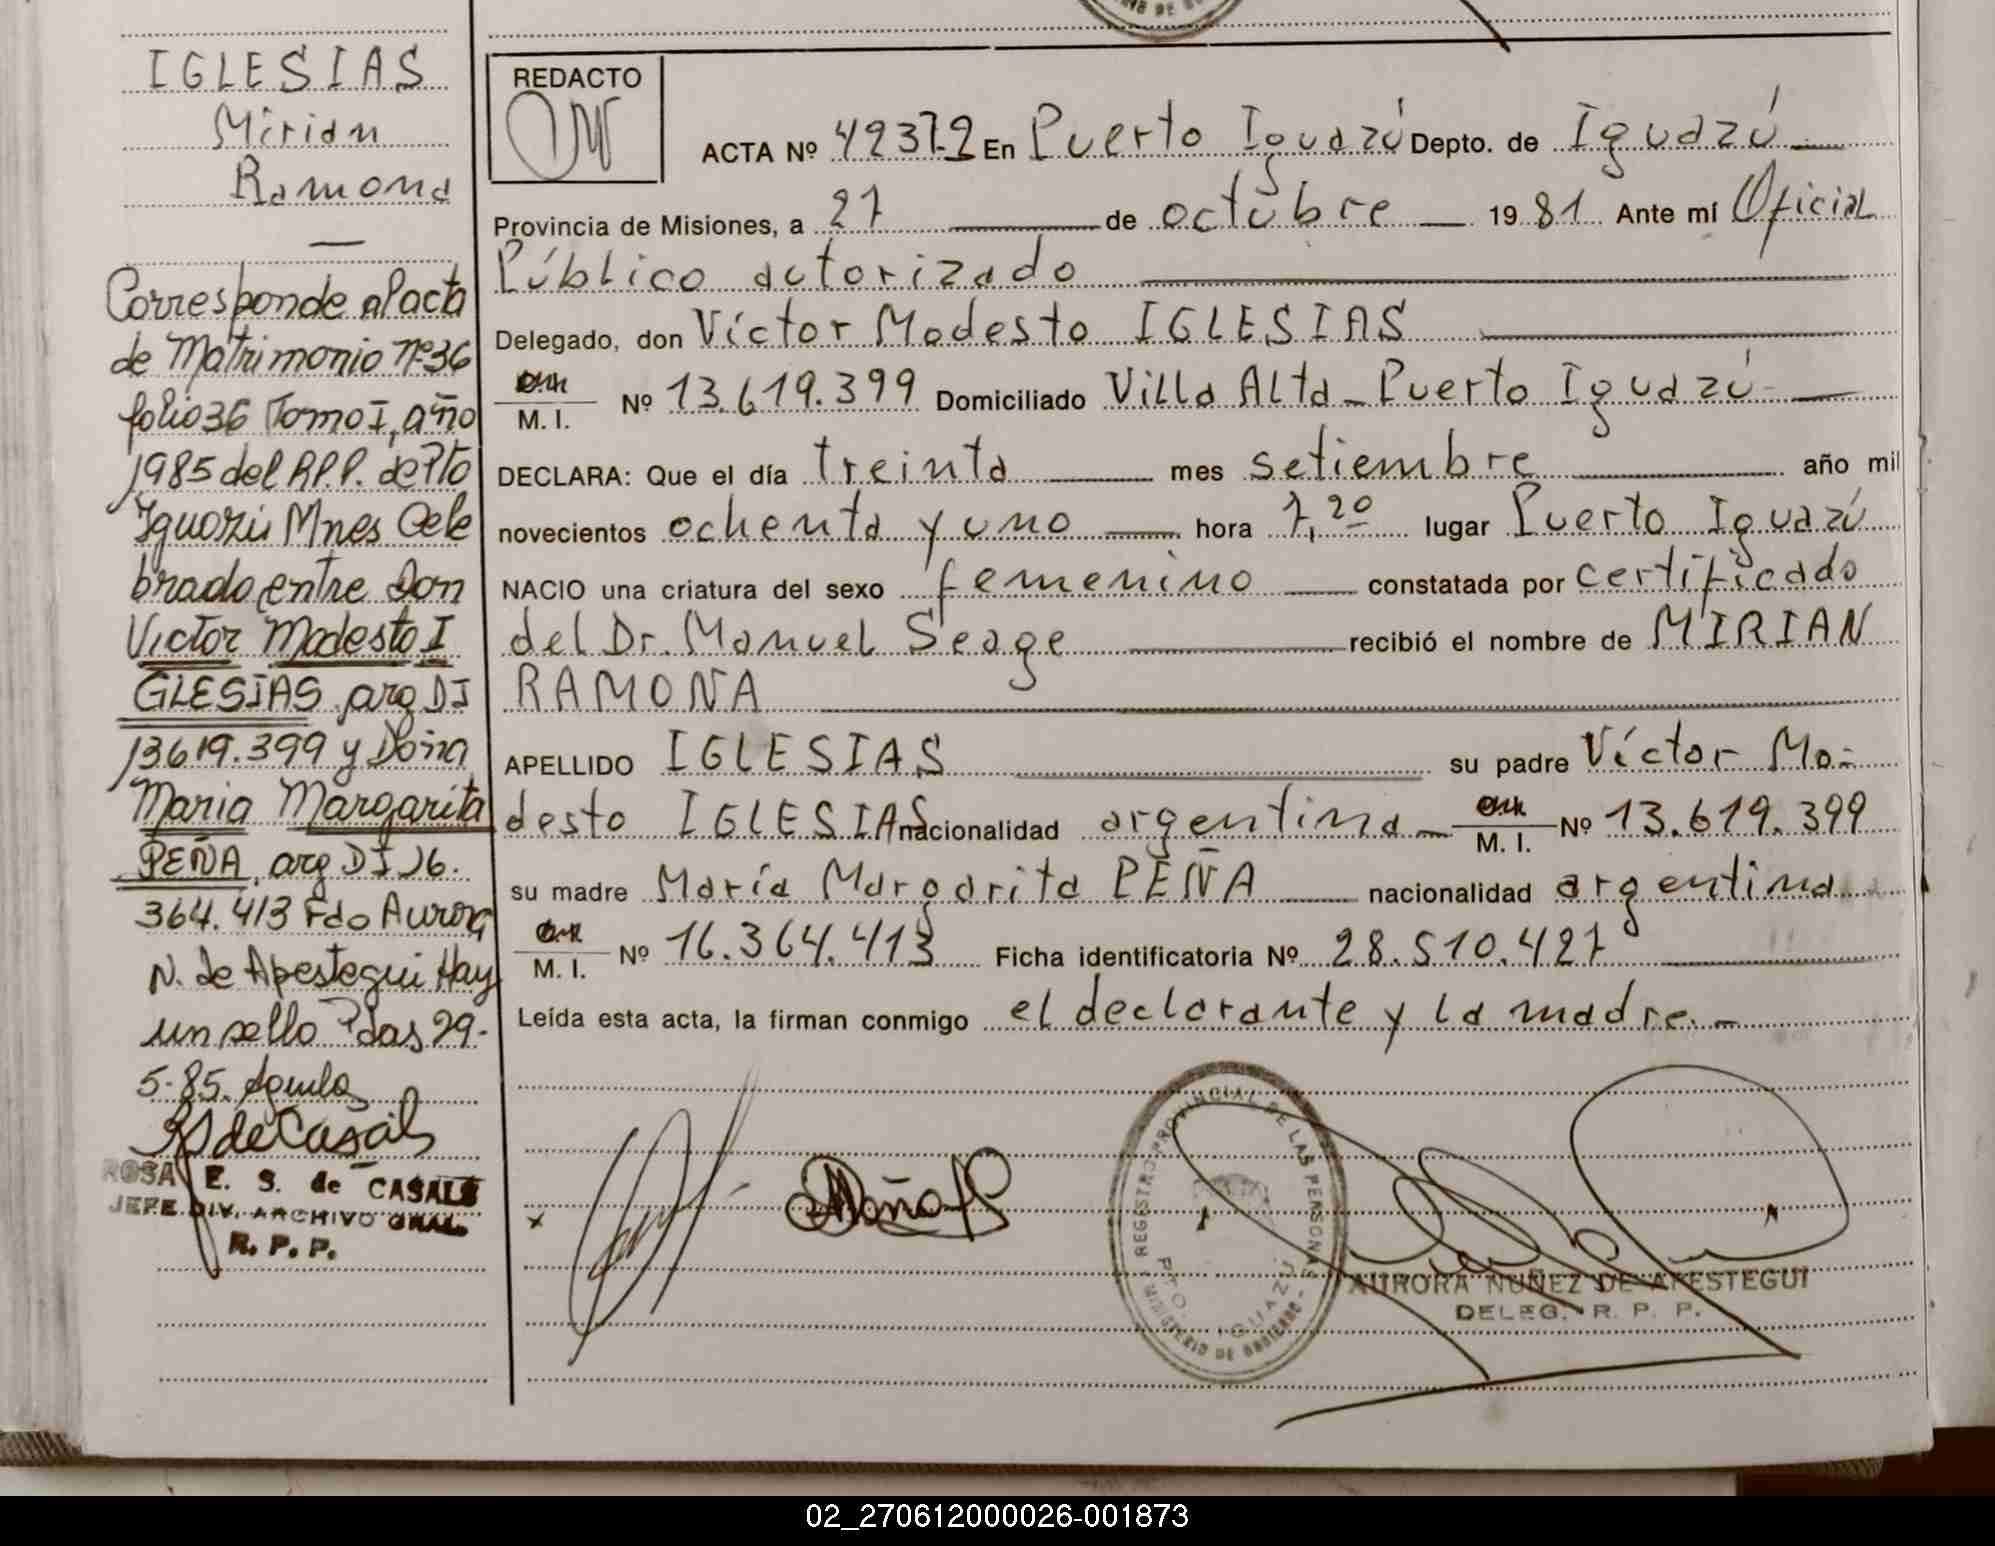 IGLESIAS
Mirian
Ramona
Corresponde al acta
de Matrimonio nº36
folio 36 Tomo I, año
1985 del R.P.P. de Pto
Iguazú Mnes Cele
brado entre Don
Victor Modesto I
GLESIAS arg DI
13.619.399 y Doña
Maria Margarita
PEÑA, arg DI 16.
364.413 Fdo Aurora
N. de Apestegui Hay
un sello Pdas 29-
5-85.
ROSA E. S. de CASALS
JEFE DIV. ARCHIVO GRAL.
R. P. P.
REDACTO
ACTA Nº 4237-2 En Puerto Iguazú Depto. de Iguazú
Provincia de Misiones, a 27 de octubre 1981 Ante mí Oficial
Público autorizado
Delegado, don Víctor Modesto IGLESIAS
M. I. Nº 13.619.399 Domiciliado Villa Alta - Puerto Iguazú
DECLARA: Que el día treinta mes setiembre año mil
novecientos ochenta y uno hora 7,20 lugar Puerto Iguazú
NACIO una criatura del sexo femenino constatada por certificado
del Dr. Manuel Seage recibió el nombre de MIRIAN
RAMONA
APELLIDO IGLESIAS su padre Víctor Mo-
desto IGLESIAS nacionalidad argentina M. I. Nº 13.619.399
su madre María Margarita PEÑA nacionalidad argentina
M. I. Nº 16.364.413 Ficha identificatoria Nº 28.510.427
Leída esta acta, la firman conmigo el declarante y la madre.-
REGISTRO PROVINCIAL DE LAS PERSONAS
PTO. IGUAZU
MINISTERIO DE GOBIERNO
AURORA NUÑEZ DE APESTEGUI
DELEG. R. P. P.
02_270612000026-001873